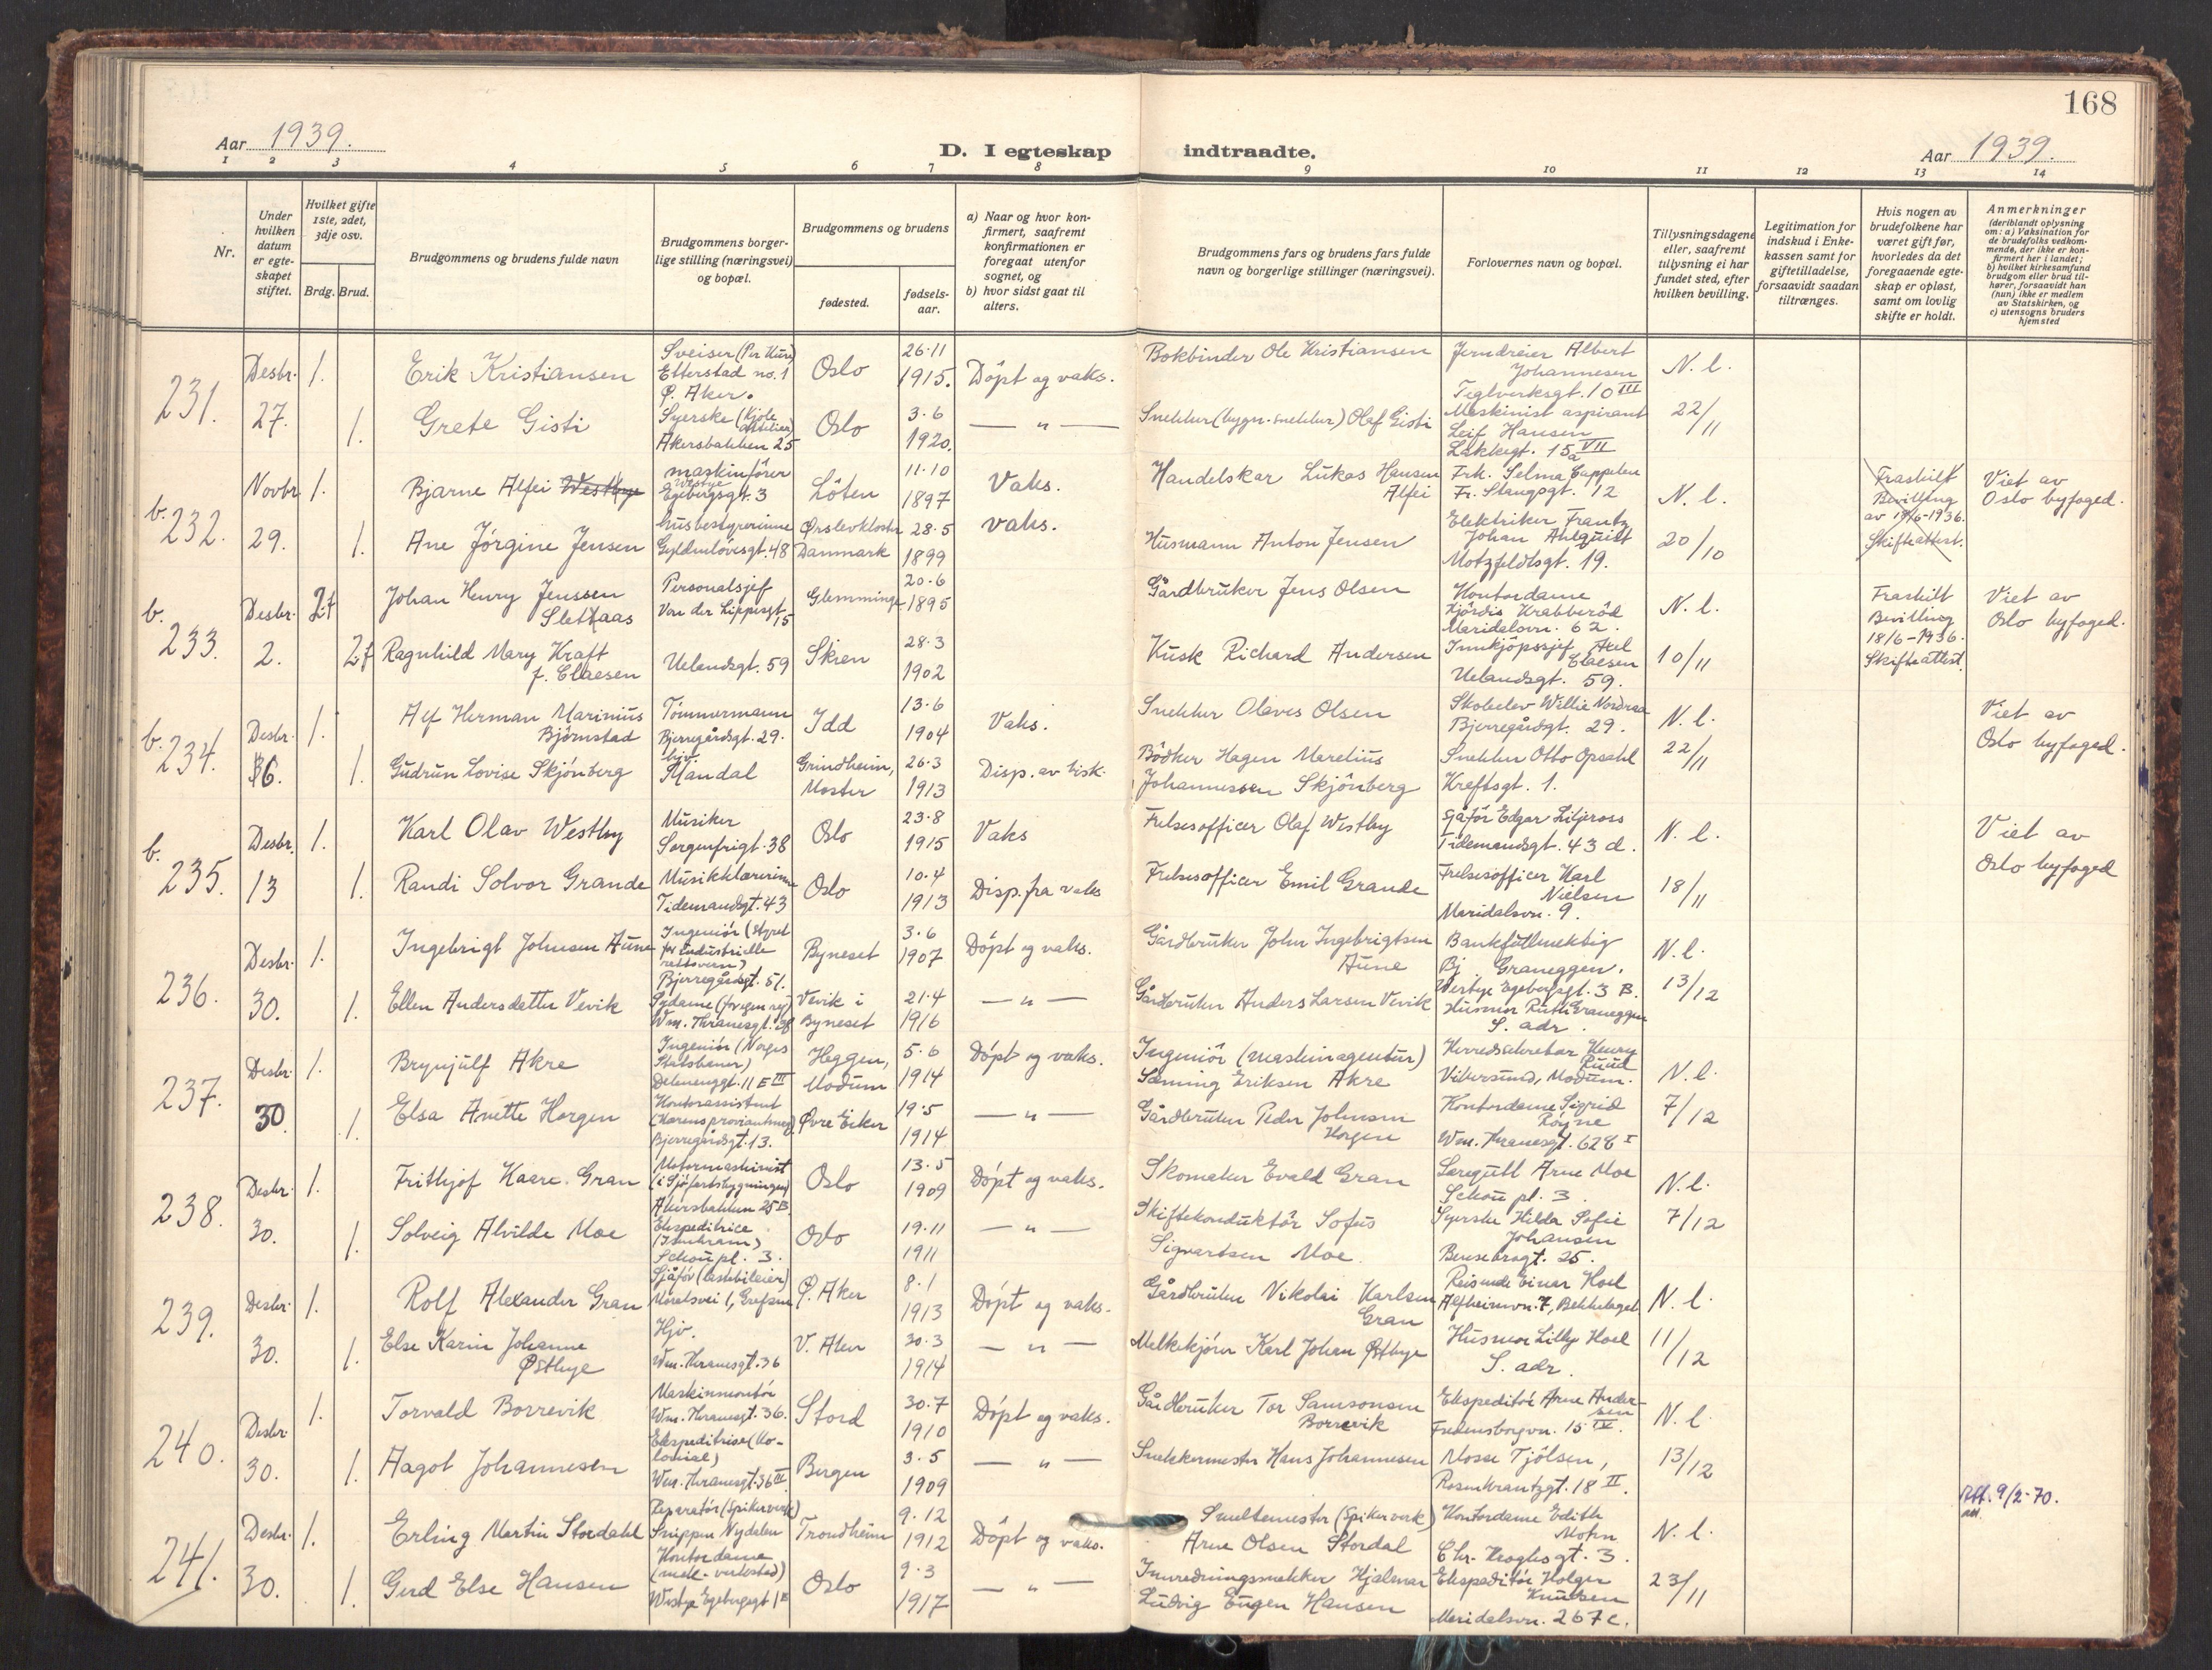 168
Aar 1939.
D. I egteskap indtraadte.
Aar 1939.
1 2 3 4 5 6 7 8 9 10 11 12 13 14
Nr.
Under hvilken datum er egteskapet stiftet.
Hvilket gifte 1ste, 2det, 3dje osv.
Brdg. Brud.
Brudgommens og brudens fulde navn
Brudgommens borgerlige stilling (næringsvei) og bopæl.
Brudgommens og brudens
fødested.
fødselsaar.
a) Naar og hvor konfirmert, saafremt konfirmationen er foregaat utenfor sognet, og
b) hvor sidst gaat til alters.
Brudgommens fars og brudens fars fulde navn og borgerlige stillinger (næringsvei).
Forlovernes navn og bopæl.
Tillysningsdagene eller, saafremt tillysning ei har fundet sted, efter hvilken bevilling.
Legitimation for indskud i Enkekassen samt for giftetilladelse, forsaavidt saadan tiltrænges.
Hvis nogen av brudefolkene har været gift før, hvorledes da det foregaaende egteskap er opløst, samt om lovlig skifte er holdt.
Anmerkninger
(deriblandt oplysning om: a) Vaksination for de brudefolks vedkommende, der ikke er konfirmert her i landet; b) hvilket kirkesamfund brudgom eller brud tilhører, forsaavidt han (hun) ikke er medlem av Statskirken, og c) utensogns bruders hjemsted
231. Desbr. 27. 1. Erik Kristiansen
Sveiser (Per Kure) Etterstad no. 1 Ø. Aker.
Oslo 26.11 1915. Döpt og vaks.
Bokbinder Ole Kristiansen
Jerndreier Albert Johannesen Teglverksgt. 10 III
N. l.
1. Grete Gisti
Syerske (Kjole attelier) Akersbakken 25
Oslo 3.6 1920. — " —
Snekker (bygn. snekker) Olaf Gisti
Maskinist aspirant Leif Hansen Lakkegt. 15a VII
22/11
b. 232. Novbr. 29. 1. Bjarne Alfei Westbye
maskinfører Westye Egebergsgt. 3
Löten 11.10 1897 Vaks.
Handelskar Lukas Hansen Alfei
Frk. Selma Cappelen Fr. Stangsgt. 12
N. l.
Fraskilt Bevilling av 18/6-1936. Skifteattest.
Viet av Oslo byfoged.
1. Ane Jörgine Jensen
husbestyrerinne Gyldenlövesgt. 48
Ørslevkloster Danmark 28.5 1899 vaks.
Husmann Anton Jensen
Elektriker Frantz Johan Ahlquist Motzfeldtsgt. 19.
20/10
b. 233. Desbr. 2. 2. f Johan Henry Jenssen Slettaas
Personalsjef Von der Lippesgt. 15
Glemminge 20.6 1895
Gårdbruker Jens Olsen
Kontordame Hjördis Krabberöd Maridalsvn. 62.
N. l.
Fraskilt Bevilling 18/6-1936. Skifteattest.
Viet av Oslo byfoged.
2. f Ragnhild Mary Kraft f. Claesen
Uelandsgt. 59
Skien 28.3 1902
Kusk Richard Andersen
Innkjöpssjef Axel Claesen Uelandsgt. 59.
10/11
b. 234. Desbr. 6. 1. Alf Herman Marinius Björnstad
Tömmermann Bjerregårdsgt. 29.
Idd 13.6 1904 Vaks.
Snekker Olaves Olsen
Skoelev Willie Nordraa Bjerregårdsgt. 29.
N. l.
Viet av Oslo byfoged.
1. Gudrun Lovise Skjönberg
hjv. Mandal
Grindheim, Moster 26.3 1913 Disp. av bisk.
Bödker Hagen Marelius Johannessen Skjönberg
Snekker Otto Opsahl Kreftsgt. 1.
22/11
b. 235. Desbr. 13 1. Karl Olav Westby
Musiker Sorgenfrigt. 38
Oslo 23.8 1915 Vaks
Frelsesofficer Olaf Westby
Sjåför Edgar Liljeross Tidemandsgt. 43 d.
N. l.
Viet av Oslo byfoged
1. Randi Solvor Grande
Musikklærerinne Tidemandsgt. 43
Oslo 10.4 1913 Disp. fra vaks
Frelsesofficer Emil Grande
Frelsesofficer Karl Nielsen Maridalsvn. 9.
18/11
236. Desbr. 30. 1. Ingebrigt Johnsen Aune
Ingeniör (styret for industrielle rettsvern) Bjerregårdsgt. 51.
Byneset 3.6 1907 Döpt og vaks.
Gårdbruker John Ingebrigtsen Aune
Bankfullmektig Bj. Graneggen. Westye Egebergsgt. 3 B.
N. l.
1. Ellen Andersdatter Vevik
Sydame (for egen regn) Wm. Thranesgt. 38
Vevik i Byneset 21.4 1916 — " —
Gårdbruker Anders Larsen Vevik
Husmor Ruth Graneggen S. adr.
13/12
237. Desbr. 30 1. Brynjulf Akre
Ingeniör (Norges Statsbaner) Delenenggt. 11 E III
Heggen, Modum 5.6 1914 Döpt og vaks.
Ingeniör (maskinagentur) Sæming Eriksen Akre
Herredssekretær Henry Ruud Vikersund, Modum.
N. l.
1. Elsa Anette Horgen
Kontorassistent (Hærens proviantmag.) Bjerregårdsgt. 13.
Øvre Eiker 19.5 1914 — " —
Gårdbruker Peder Johnsen Horgen
Kontordame Sigrid Röyne Wm. Thranesgt. 62 B I
7/12
238. Desbr. 30. 1. Frithjof Kaare Gran
Motormaskinist (i Sjöfartsbygningen) Akersbakken 25 B.
Oslo 13.5 1909 Döpt og vaks.
Skomaker Evald Gran
Laregutt Arne Moe Schou pl. 3.
N. l.
1. Solveig Alvilde Moe
Ekspeditrice (Isenkram) Schou pl. 3.
Oslo 19.11 1911 — " —
Skiftekonduktör Sofus Sigvartsen Moe
Syerske Hilda Sofie Johansen 25.
7/12
239. Desbr. 30. 1. Rolf Alexander Gran
Sjåför (lastebileier) 1, Grefsen
Ø. Aker 8.1 1913 Döpt og vaks.
Gårdbruker Nikolai Karlsen Gran
Reisende Einar Hoel Alfheimvn. 7, Bekkelaget
N. l.
1. Else Karin Johanne Østbye
Hjv. Wm. Thranesgt. 36
V. Aker 30.3 1914 — " —
Melkekjörer Karl Johan Østbye
Husmor Lilly Hoel S. adr.
11/12
240. Desbr. 30. 1. Torvald Borrevik
Maskinmontör Wm. Thranesgt. 36.
Stord 30.7 1910 Döpt og vaks.
Gårdbruker Tor Samsonsen Borrevik
Ekspeditör Arne Andersen Fredensborgvn. 15 IV.
N. l.
1. Aagot Johannesen
Ekspeditrise (Kolonial) Wm. Thranesgt. 36 III
Bergen 3.5 1909 — " —
Snekkermester Hans Johannesen
Mosse Tjölsen, Rosenkrantzgt. 18 II.
13/12
241. Desbr. 30. 1. Erling Martin Stordahl
Reparatör (Spikerverk) Snippen Nydalen
Trondheim 9.12 1912 Döpt og vaks.
Smeltemester (Spikerverk) Arne Olsen Stordal
Kontordame Edith Mohn Chr. Kroghsgt. 3.
N. l.
Att. 9/2-70.
1. Gerd Else Hansen
Kontordame (mek. verksted) Westye Egebergsgt 1 II
Oslo 9.3 1917 — " —
Innredningssnekker Hjalmar Ludvig Eugen Hansen
Ekspeditör Holger Knutsen Maridalsvn. 267 c.
23/11